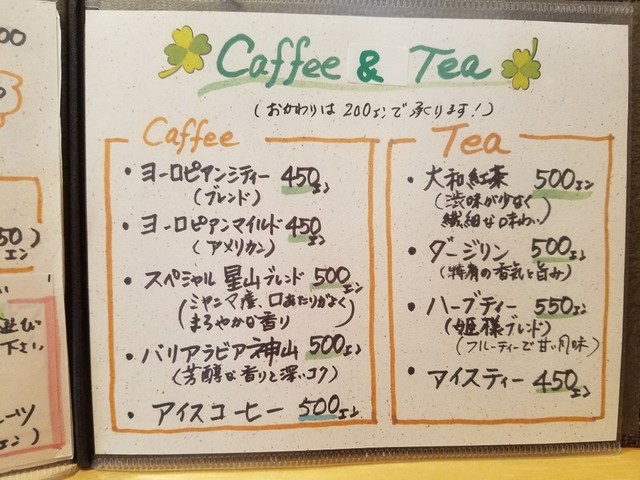 Caffee & Tea
(おかわりは200エンで承ります!)
Caffee
・ヨーロピアンシティー 450エン
(ブレンド)
・ヨーロピアンマイルド 450エン
(アメリカン)
・スペシャル星山ブレンド 500エン
(ミャンマ産、口あたりがよく
まろやかな香り)
・バリアラビア神山 500エン
(芳醇な香りと深いコク)
・アイスコーヒー 500エン
Tea
・大和紅茶 500エン
(渋味が少なく
繊細な味わい)
・ダージリン 500エン
(特有の香気と旨み)
・ハーブティー 550エン
(姫様ブレンド)
(フルーティーで甘い風味)
・アイスティー 450エン
00
50)
エン
遊び
下さい
ルーツ
エン)